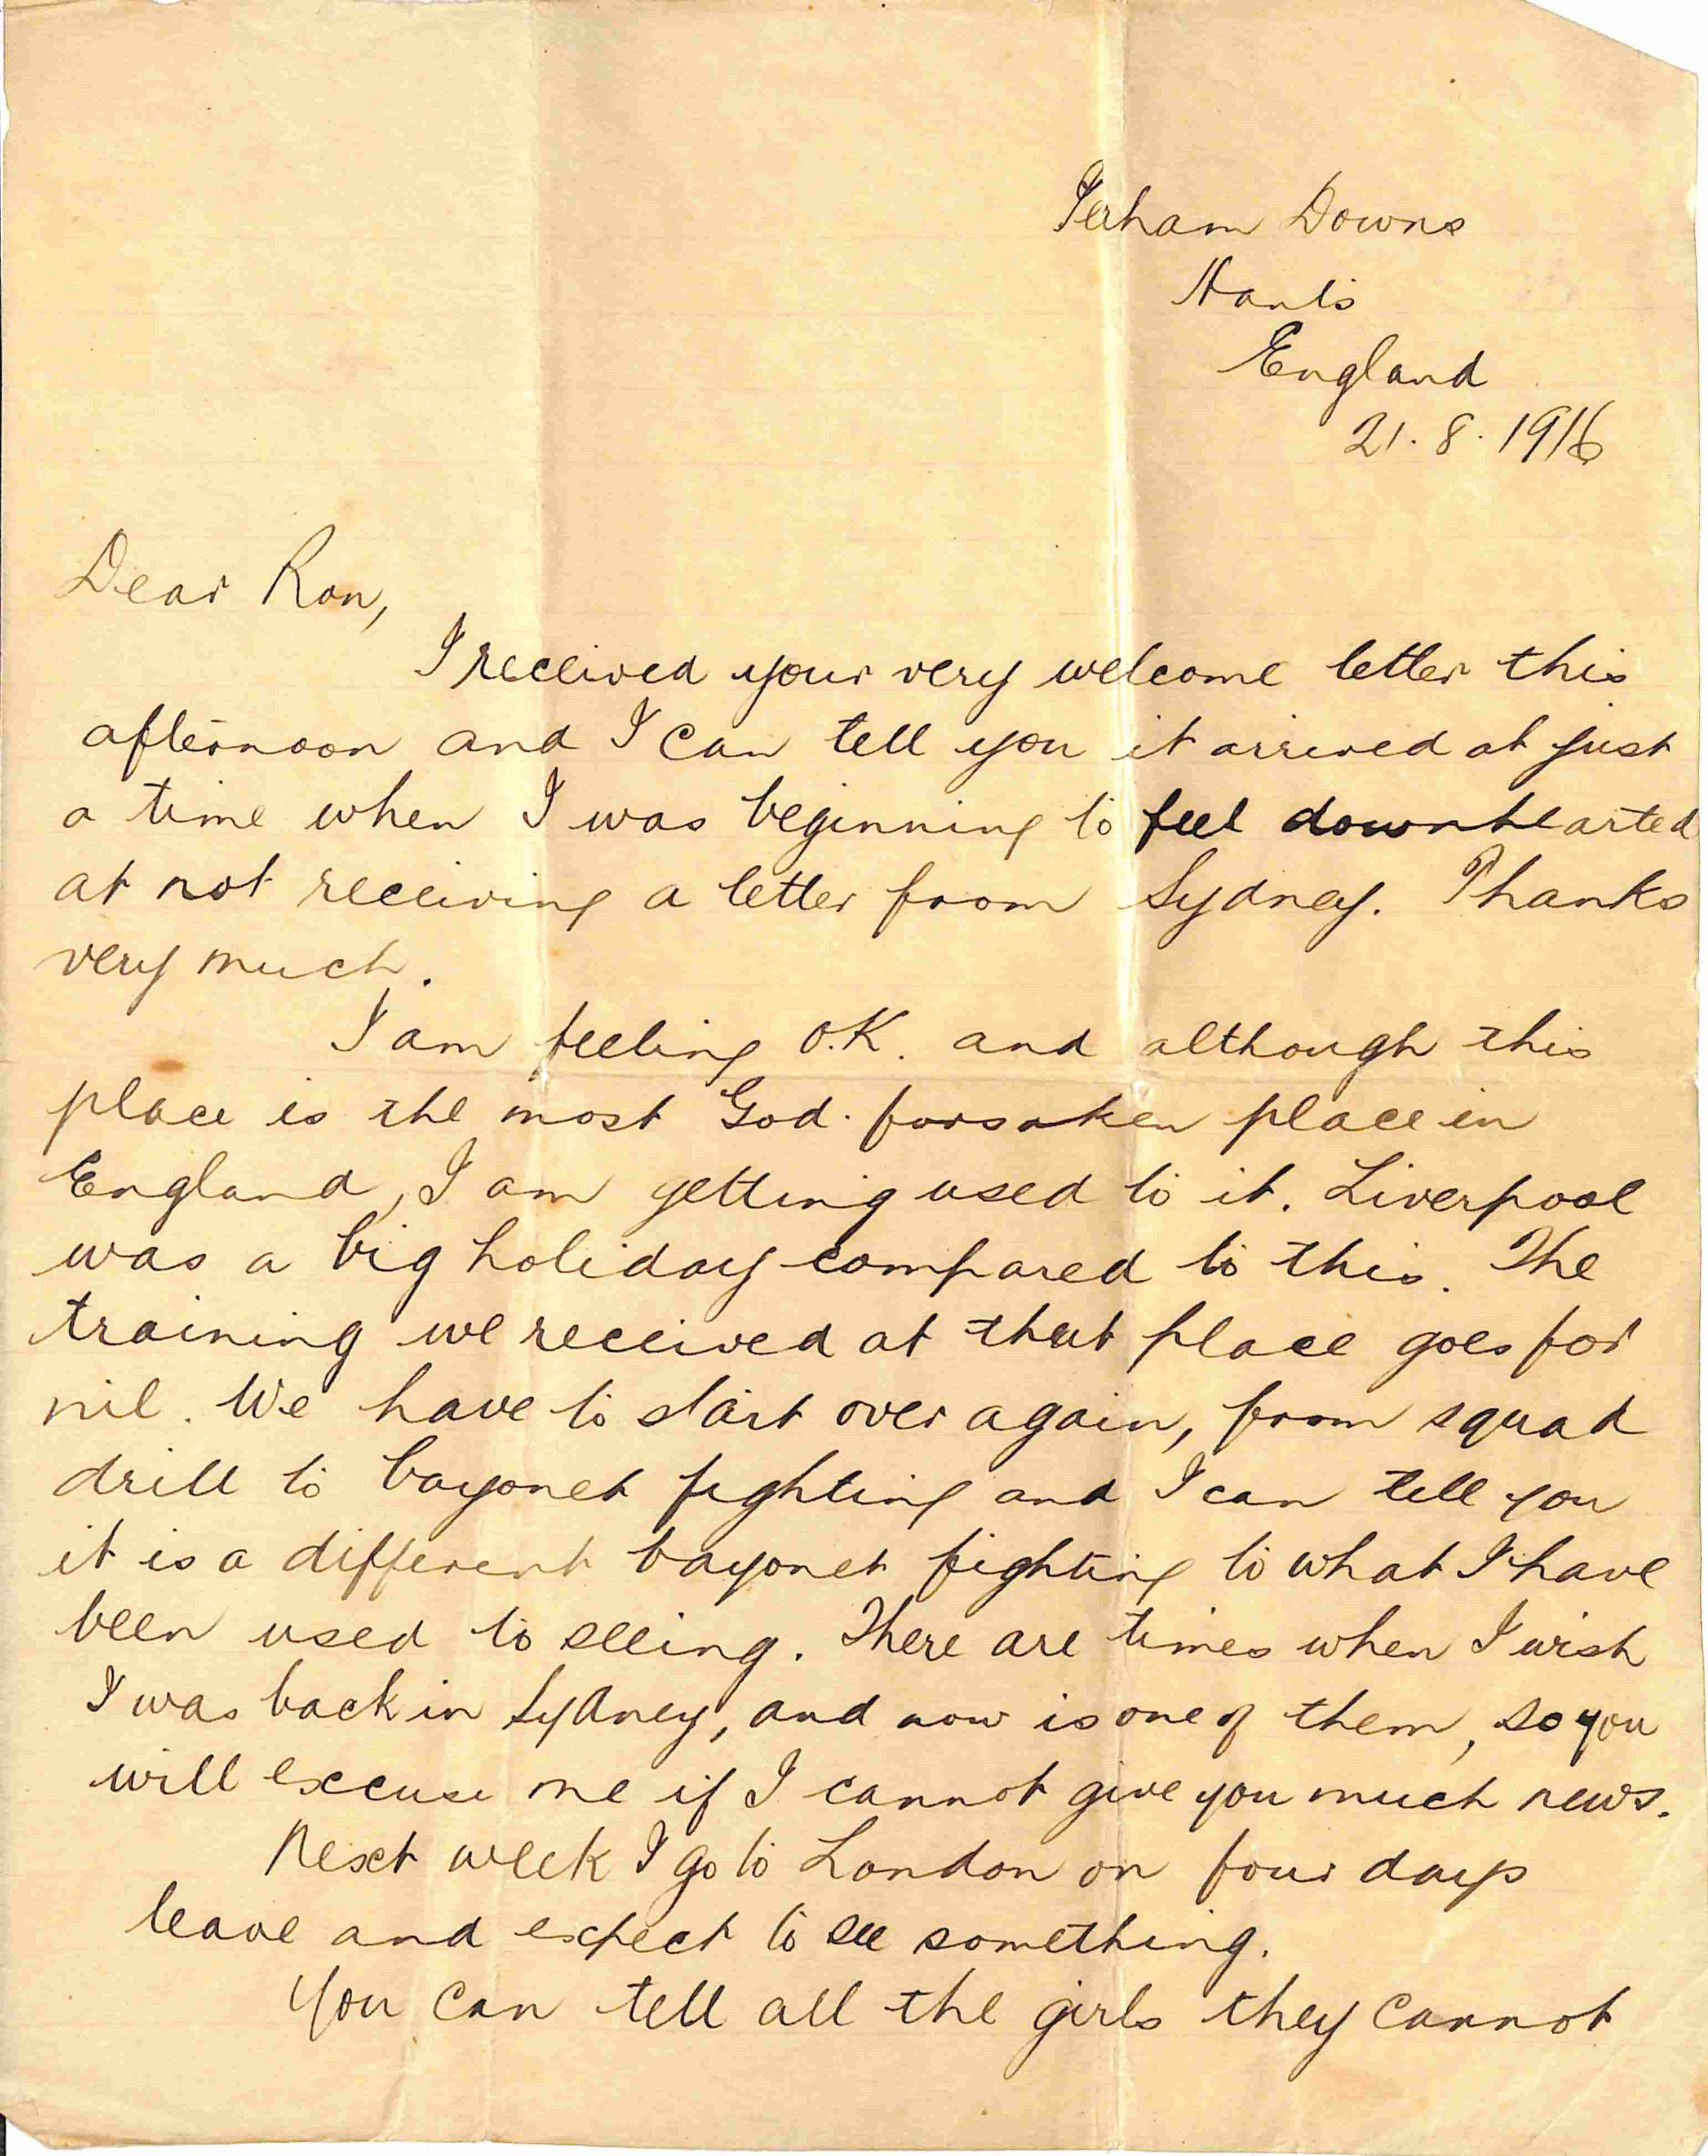 Perham Downs
Hants
England
21.8.1916
Dear Ron,
I received your very welcome letter this
afternoon and I can tell you it arrived at just
a time when I was beginning to feel downhearted
at not receiving a letter from Sydney. Thanks
very much.
I am feeling O.K. and although this
place is the most God-forsaken place in
England, I am getting used to it. Liverpool
was a big holiday compared to this. The
training we received at that place goes for
nil. We have to start over again, from squad
drill to bayonet fighting and I can tell you
it is a different bayonet fighting to what I have
been used to seeing. There are times when I wish
I was back in Sydney, and now is one of them, so you
will excuse me if I cannot give you much news.
Next week I go to London on four days
leave and expect to see something.
You can tell all the girls they cannot